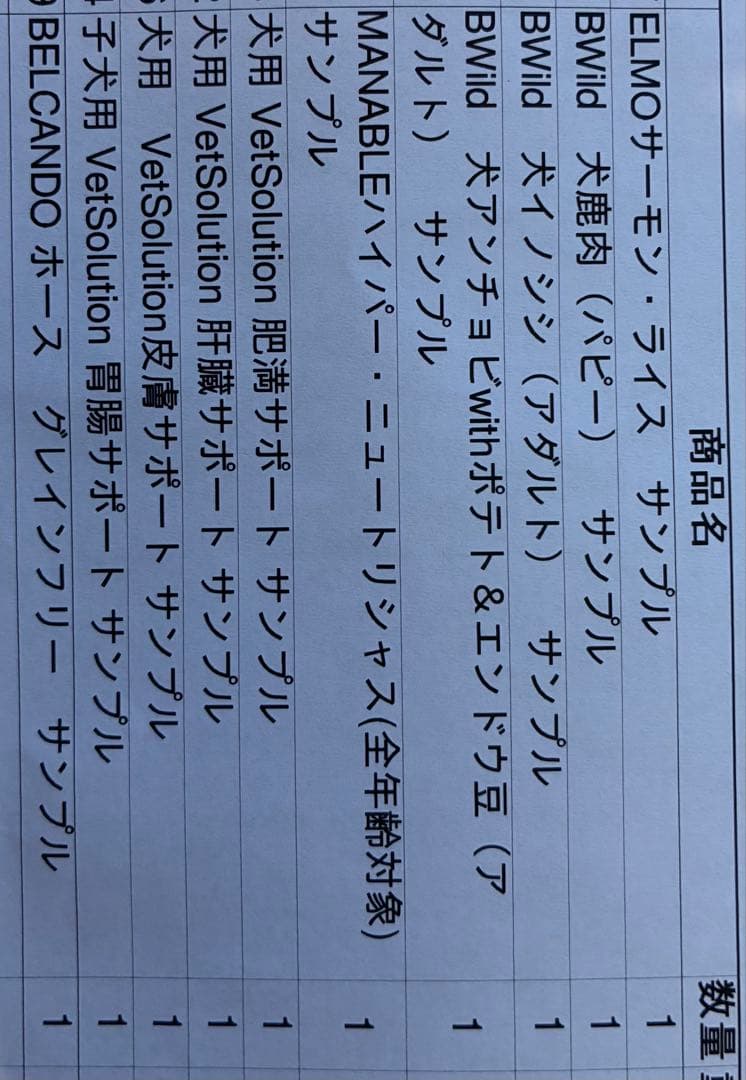 商品名 数量
ELMOサーモン・ライス サンプル 1
BWild 犬鹿肉（パピー） サンプル 1
BWild 犬イノシシ（アダルト） サンプル 1
BWild 犬アンチョビwithポテト&エンドウ豆（ア
ダルト） サンプル 1
MANABLEハイパー・ニュートリシャス(全年齢対象)
サンプル 1
犬用 VetSolution 肥満サポート サンプル 1
犬用 VetSolution 肝臓サポート サンプル 1
犬用 VetSolution皮膚サポート サンプル 1
子犬用 VetSolution 胃腸サポート サンプル 1
BELCANDO ホース グレインフリー サンプル 1